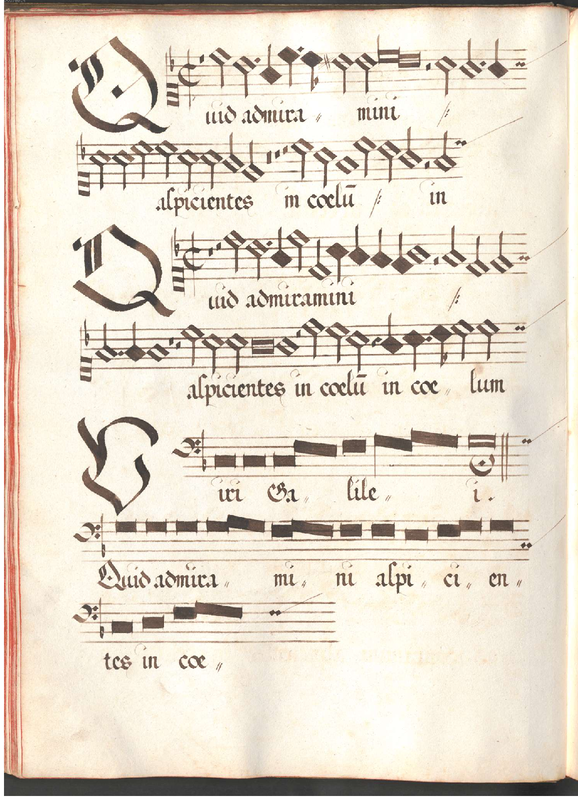 Quid admira〃 mini /:
aspicientes in coelū /: in
Quid admiramini /:
aspicientes in coelū in coe〃 lum
Viri Ga〃 lile〃 i.
Quid admira〃 mi〃 ni aspi〃 ci〃 en〃
tes in coe〃